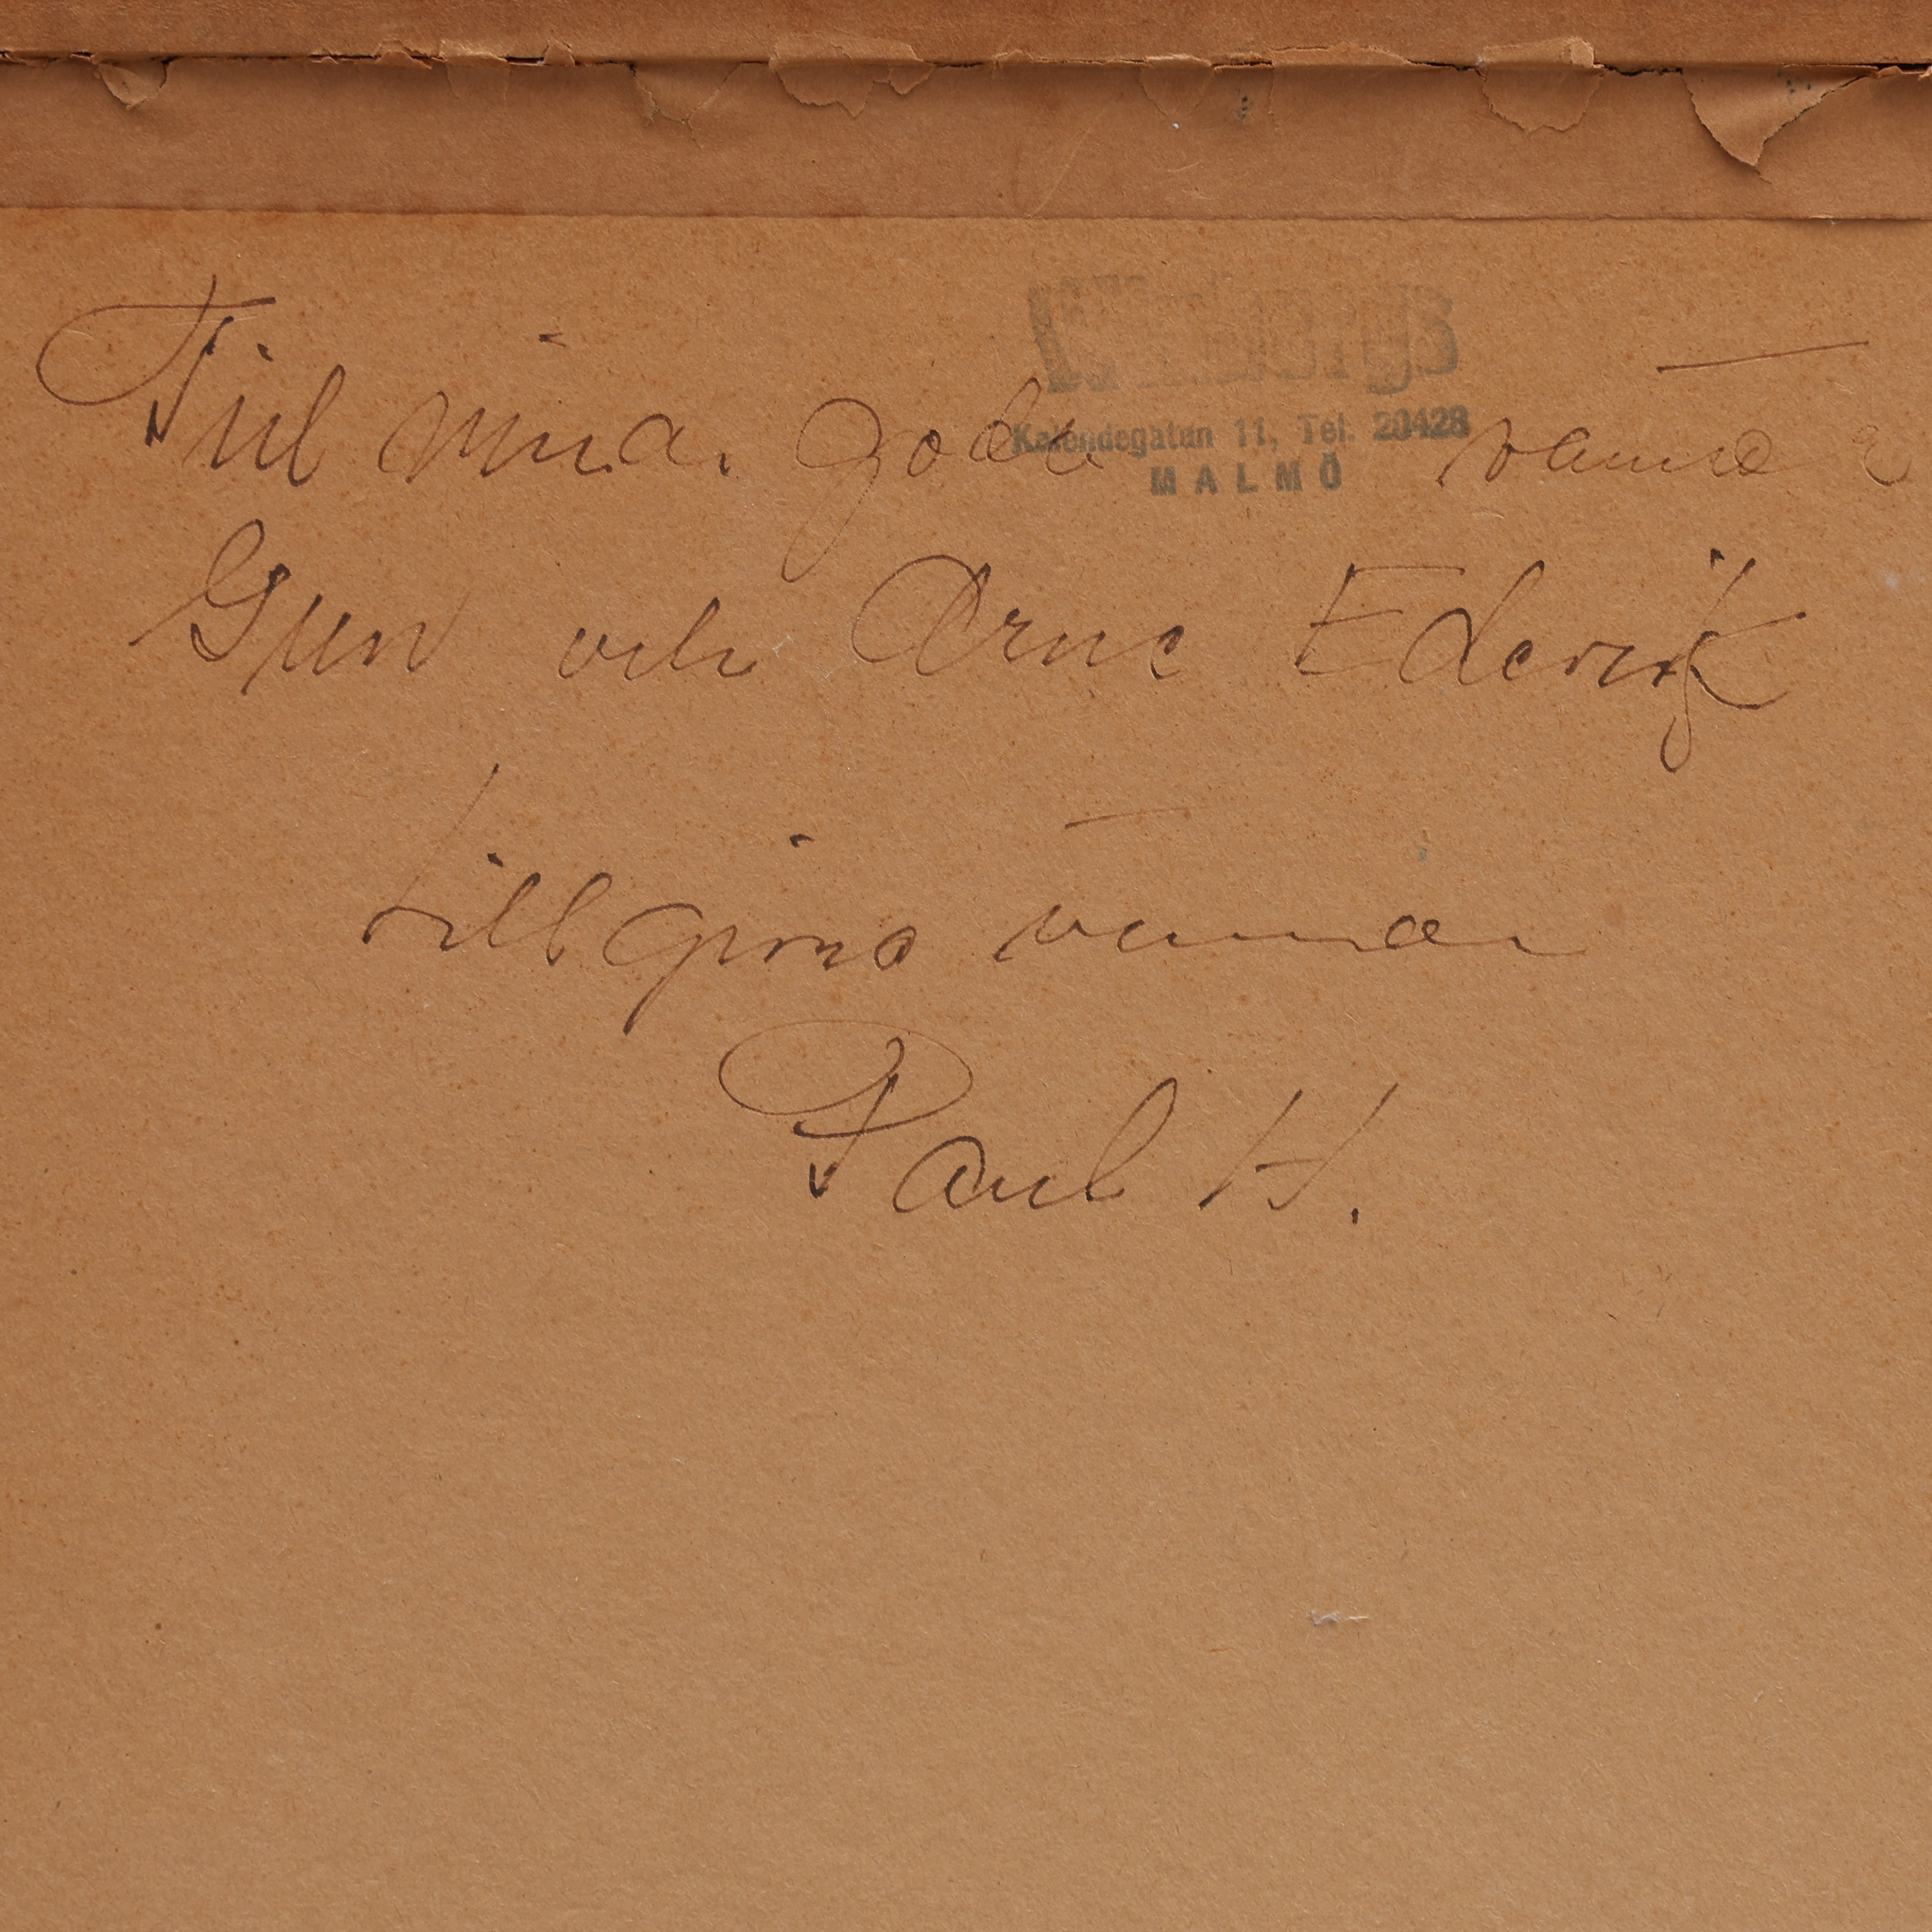 Till mina goda vänner
Kalendegatan 11, Tel. 20428
MALMÖ
Gun och Arne
tillgivna vännen
Paul H.